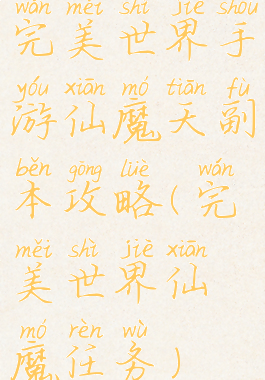 wán měi shì jiè shǒu
完美世界手
yóu xiān mó tiān fù
游仙魔天副
běn gōng lüè wán
本攻略(完
měi shì jiè xiān
美世界仙
mó rèn wù
魔任务)